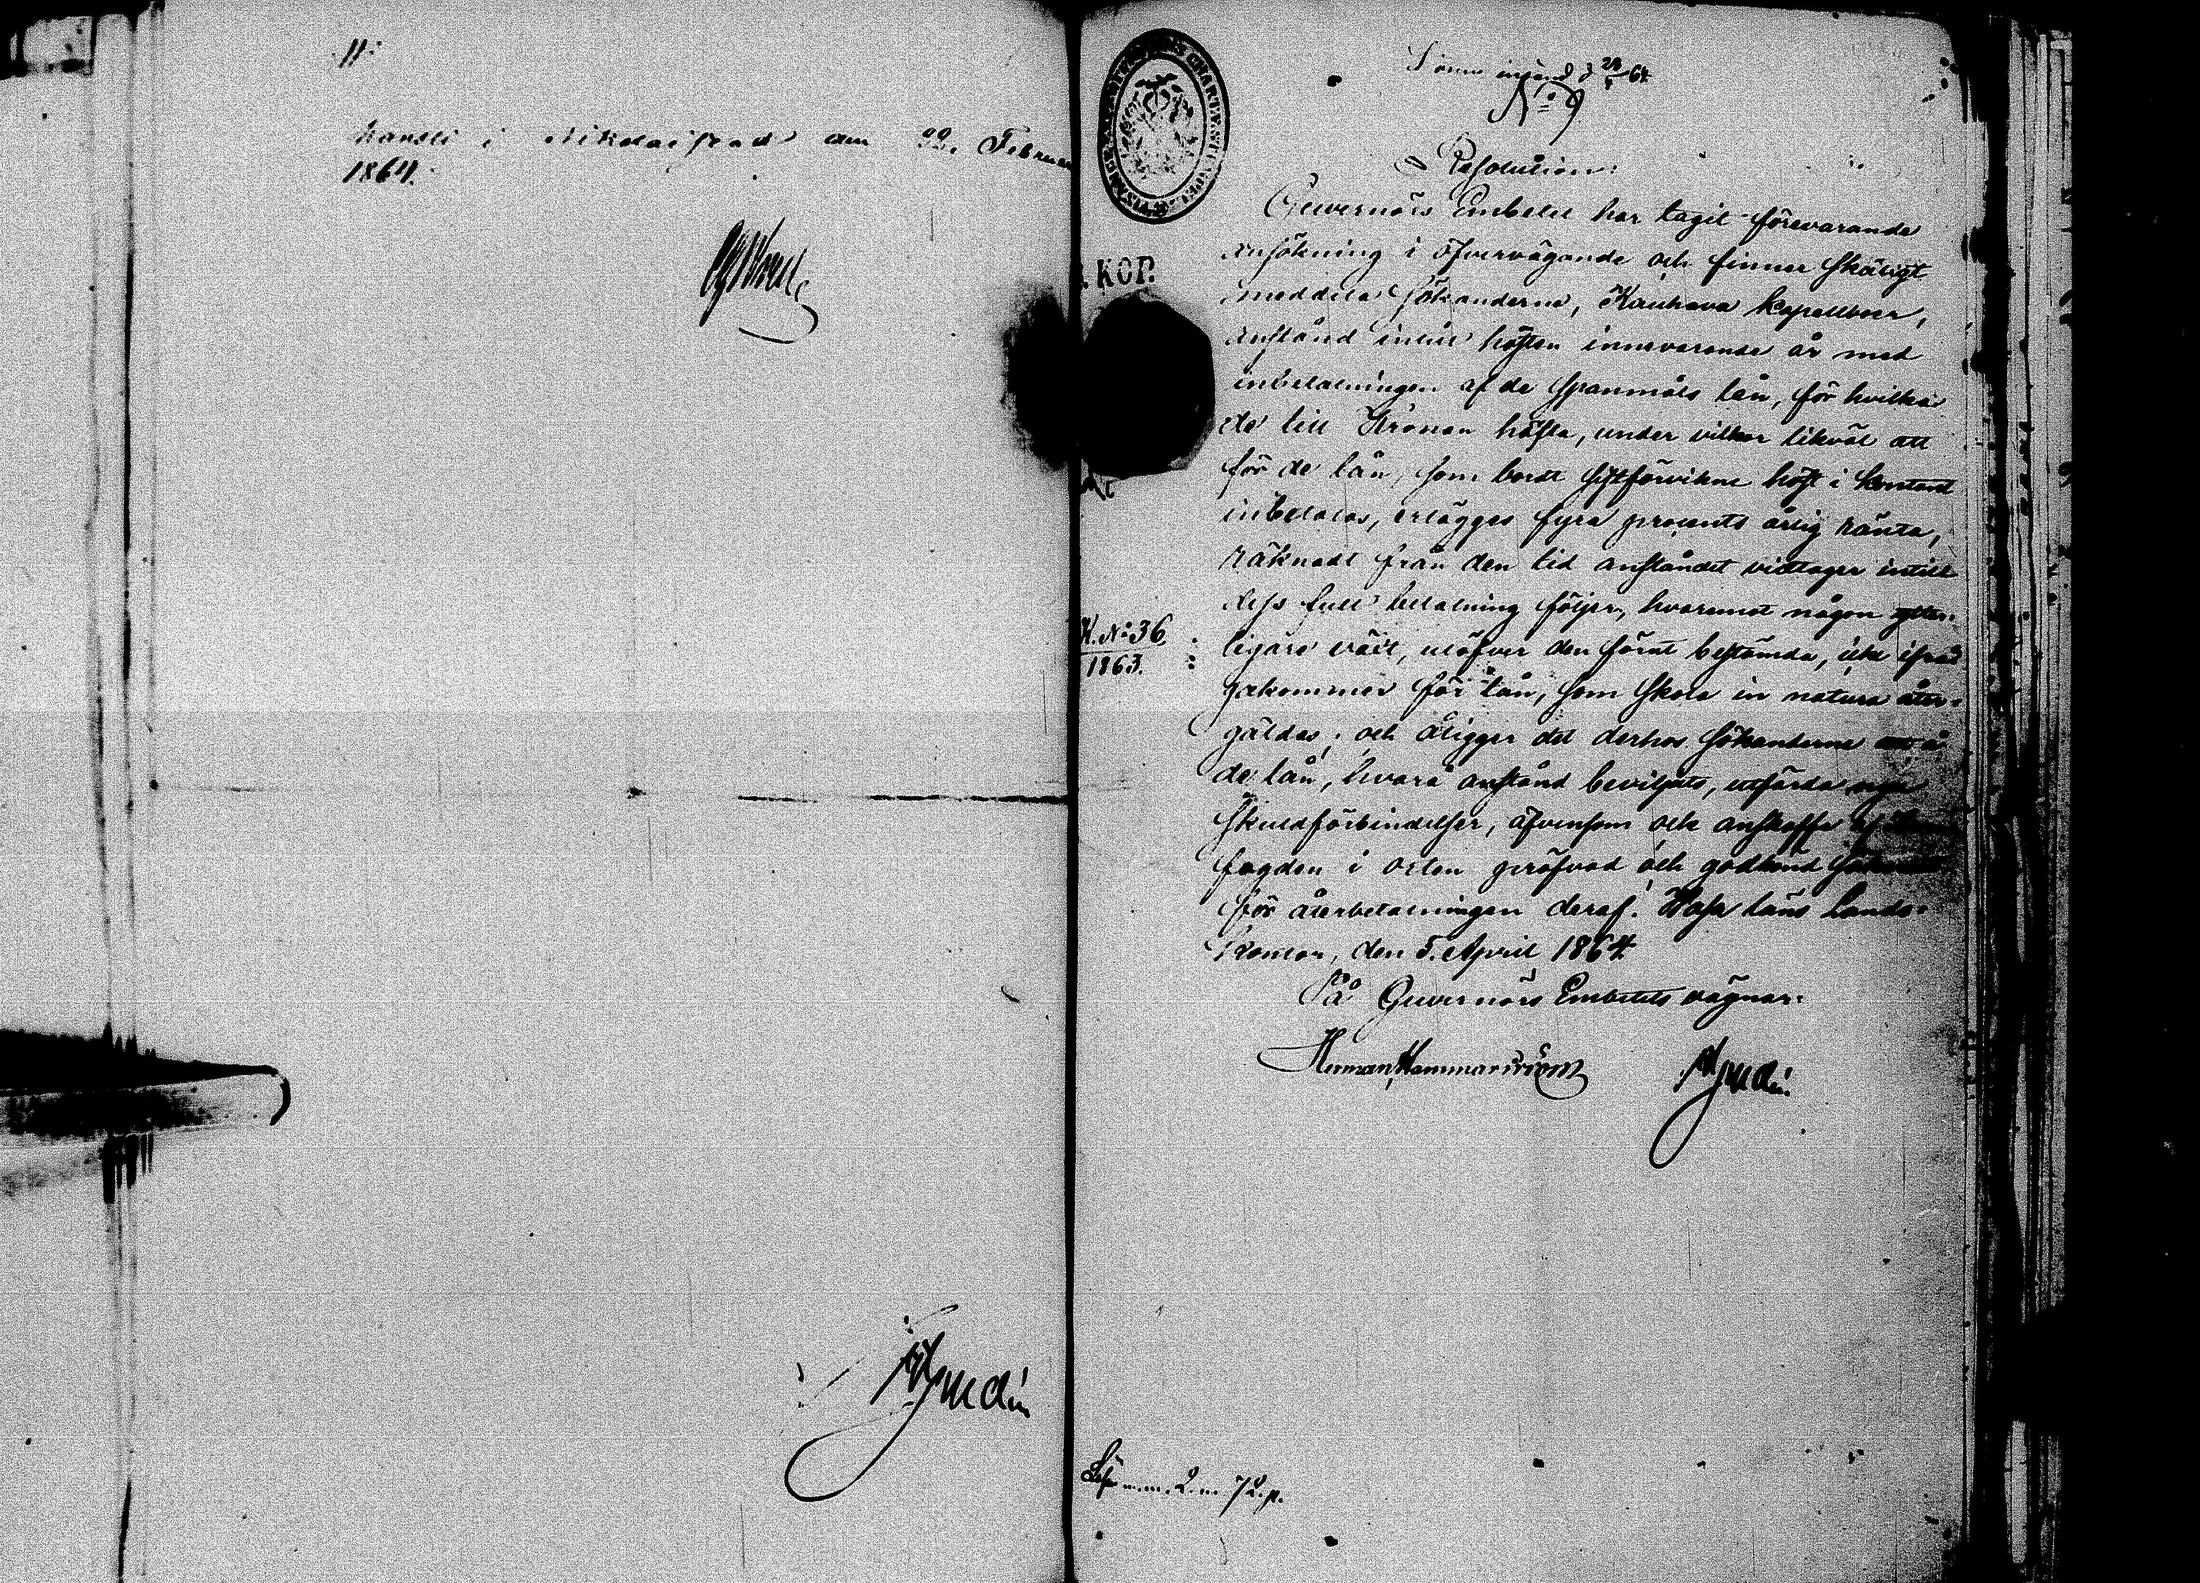 11.
kansli i Nikolaistad den 22. Februa
1864.
KOP.
ingifvet d 28/ 64.
N:o 9
Resolution:
Guvernörs Embetet har tagit förevarande
ansökning i öfvervägande och finner skäligt
meddela sökanderne, Kauhava kapellboer,
anstånd intill hösten innevarande år med
inbetalningen af de spanmåls lån, för hvilka
de till Kronan häfta, under vilkor likväl att
för de lån, som bordt sistförvikne höst i kontant
inbetalas, erlägges fyra procents årlig ränta,
räknadt från den tid anståndet vidtager intill
dess full betalning följer, hvaremot någon ytter-
ligare växt, utöfver den förut bestämda, icke ifråga-
gakommer för lån, som skola in natura åter-
gäldas; och åligger det derhos sökanderne att å
de lån, hvarå anstånd beviljats, utfärda nya
skuldförbindelser, äfvensom och anskaffa af
fogden i orten pröfvad och godkänd
för återbetalningen deraf. Wasa läns Lands-
kontor, den 5. April 1864.
På Guvernörs Embetets vägnar:
Herman Hammarström
K. No 36
1863.
Lös m.m. 2 m. 72 p.